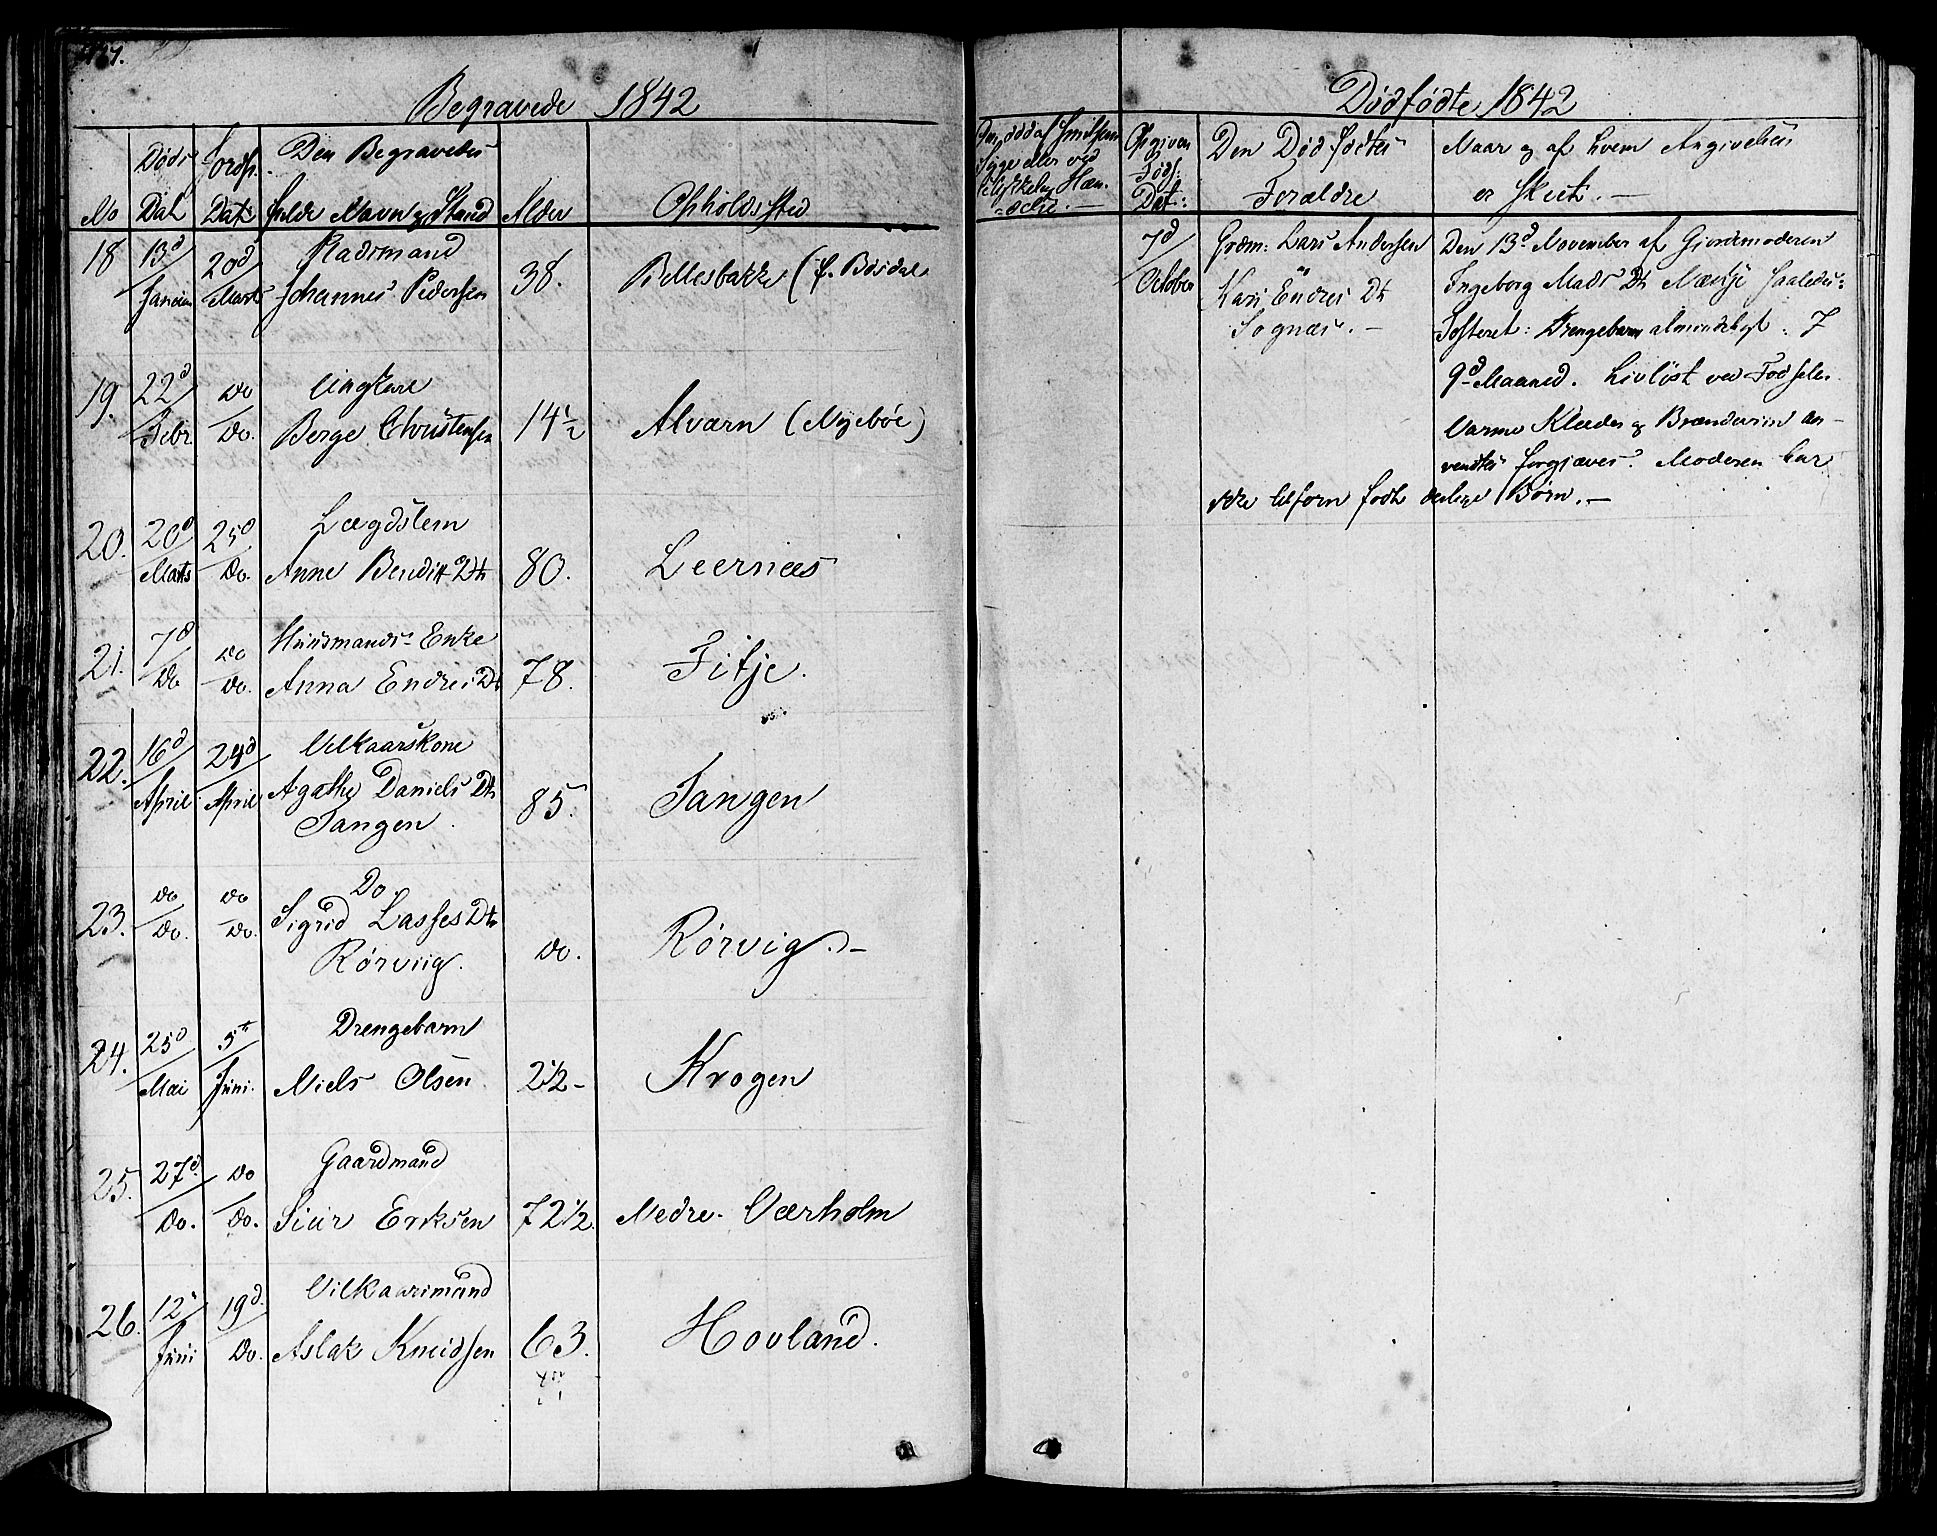 Begravede 1842
No
Døds Dat
Jordp. Dat:
Den Begravedes fulde Navn og Stand
Alder
Opholdssted
18 13d/Januar 20d/Marts Stadsmand
Johannes Pedersen 38. Bellesbakke (f. Bøsdal
19. 22d/Febr Do/Do. Ungkarl
Berge Christensen 14½ Alværn (Nyebøe)
20. 20d/Marts 25d/Do. Lægdslem
Anne Bendikt Dt 80. Leernæs
21. 7d/Do Do/Do. Huusmands-Enke
Anna Endres Dt 78. Fitje.
22. 16d/April 24d/April Vilkaarskone
Agathe Daniels Dt 85. Tangen
Tangen.
23. Do/Do. Do/Do. Do
Sigrid Lasses Dt
Rørviig. Do. Rørvig.-
24. 25d/Mai 5te/Juni. Drengebarn
Niels Olsen. 2½- Krogen
25. 27d./Do. Do/Do. Gaardmand
Siur Eriksen 72½. Nedre- Værholm
26. 12/Juni 19d./Do. Vilkaarsmand
Aslak Knudsen 63. Hovland.
Dødfødte 1842
Om død af
Syge eller ved
ulykkelig Hæn-
-delse.-
Opgiven
Føds:
Dat:
Den Dødfødtes
Forældre
Naar og af hvem Angivelsen
er skeet.-
7d/October
Grdm: Lars Andersen
Kari Endres Dt
Sognæs.-
Den 13d November af Giordemoderen
Ingeborg Mads Dt saaledes:
Fosteret: Drengebarn almindeligt.
9d-Maaned. Livløst ved Fødselen.
Varme Klæder og Brændeviin an-
vendtes forgjæves. Moderen har
ikke tilforn født Børn.-